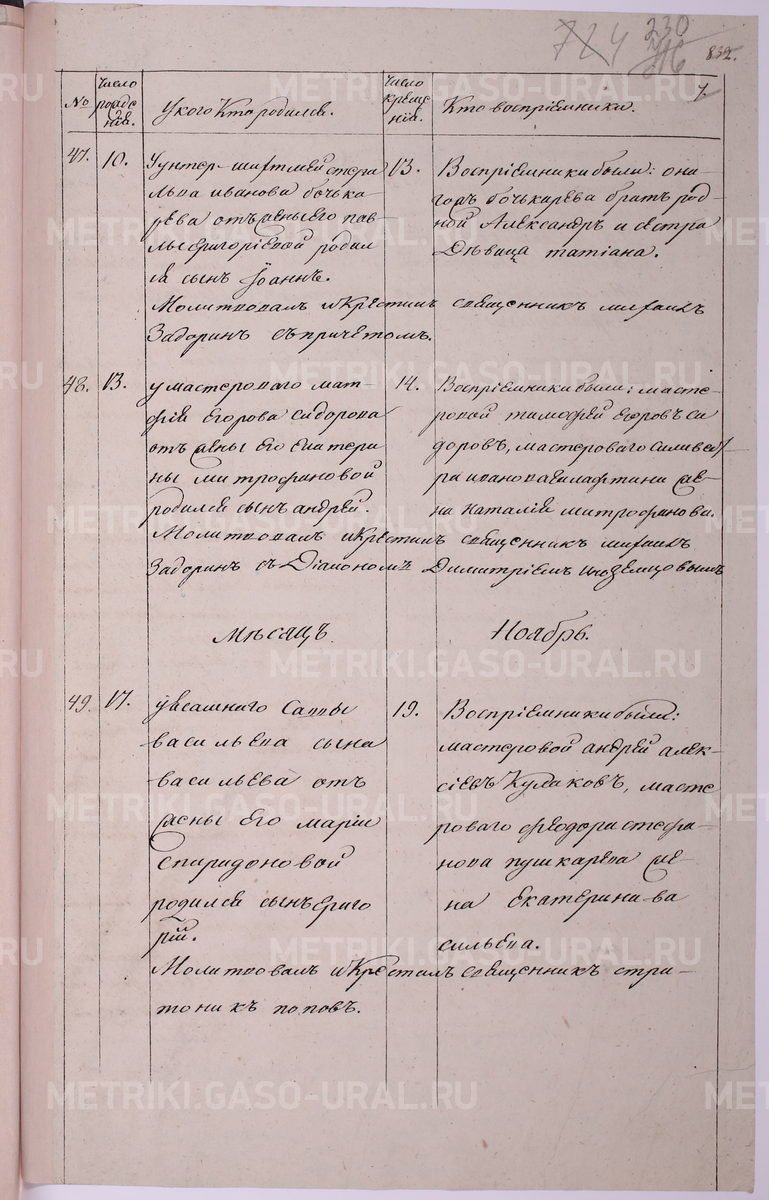 724 230
832.
7
№ Число рождения. У кого Кто родился. Число крещенія. Кто восприемники.
47. 10. У унтер-шихтмейстера
Льва Иванова Бочька-
рева отъ жены его Пав-
лы Григоріевой родил
ся сынъ Іоаннъ.
13. Воспріемники были: она-
го Бочькарева братъ род-
ной Александръ и сестра
Дѣвица Татіана.
Молитвовалъ и Крестилъ священникъ Михаилъ
Задоринъ съ причетомъ.
48. 13. У мастероваго Мат-
фія Егорова Сидорова
отъ жены его Екатери
ны Митрофановой
родился сынъ Андрей.
14. Воспріемники были: масте-
ровой Тимофей Егоровъ Си
доровъ, мастероваго Силивес
ра Иванова жe-
на Наталія Митрофанова.
Молитвовалъ и Крестилъ священникъ Михаилъ
Задоринъ съ Діакономъ Димитріемъ Иноземцовымъ
Мѣсяцъ Ноябрь.
49. 17. Саввы
Васильева сына
Васильева отъ
жены его Маріи
Спиридоновой
родился сынъ Григо
рій.
19. Воспріемники были:
мастеровой Андрей Алек-
сіевъ Кулаковъ, масте
роваго Феодора Стефа-
нова Пушкарева же-
на Екатерина Ва
сильева.
Молитвовалъ и Крестилъ священникъ Стра-
тоникъ Поповъ.
METRIKI.GASO-URAL.RU